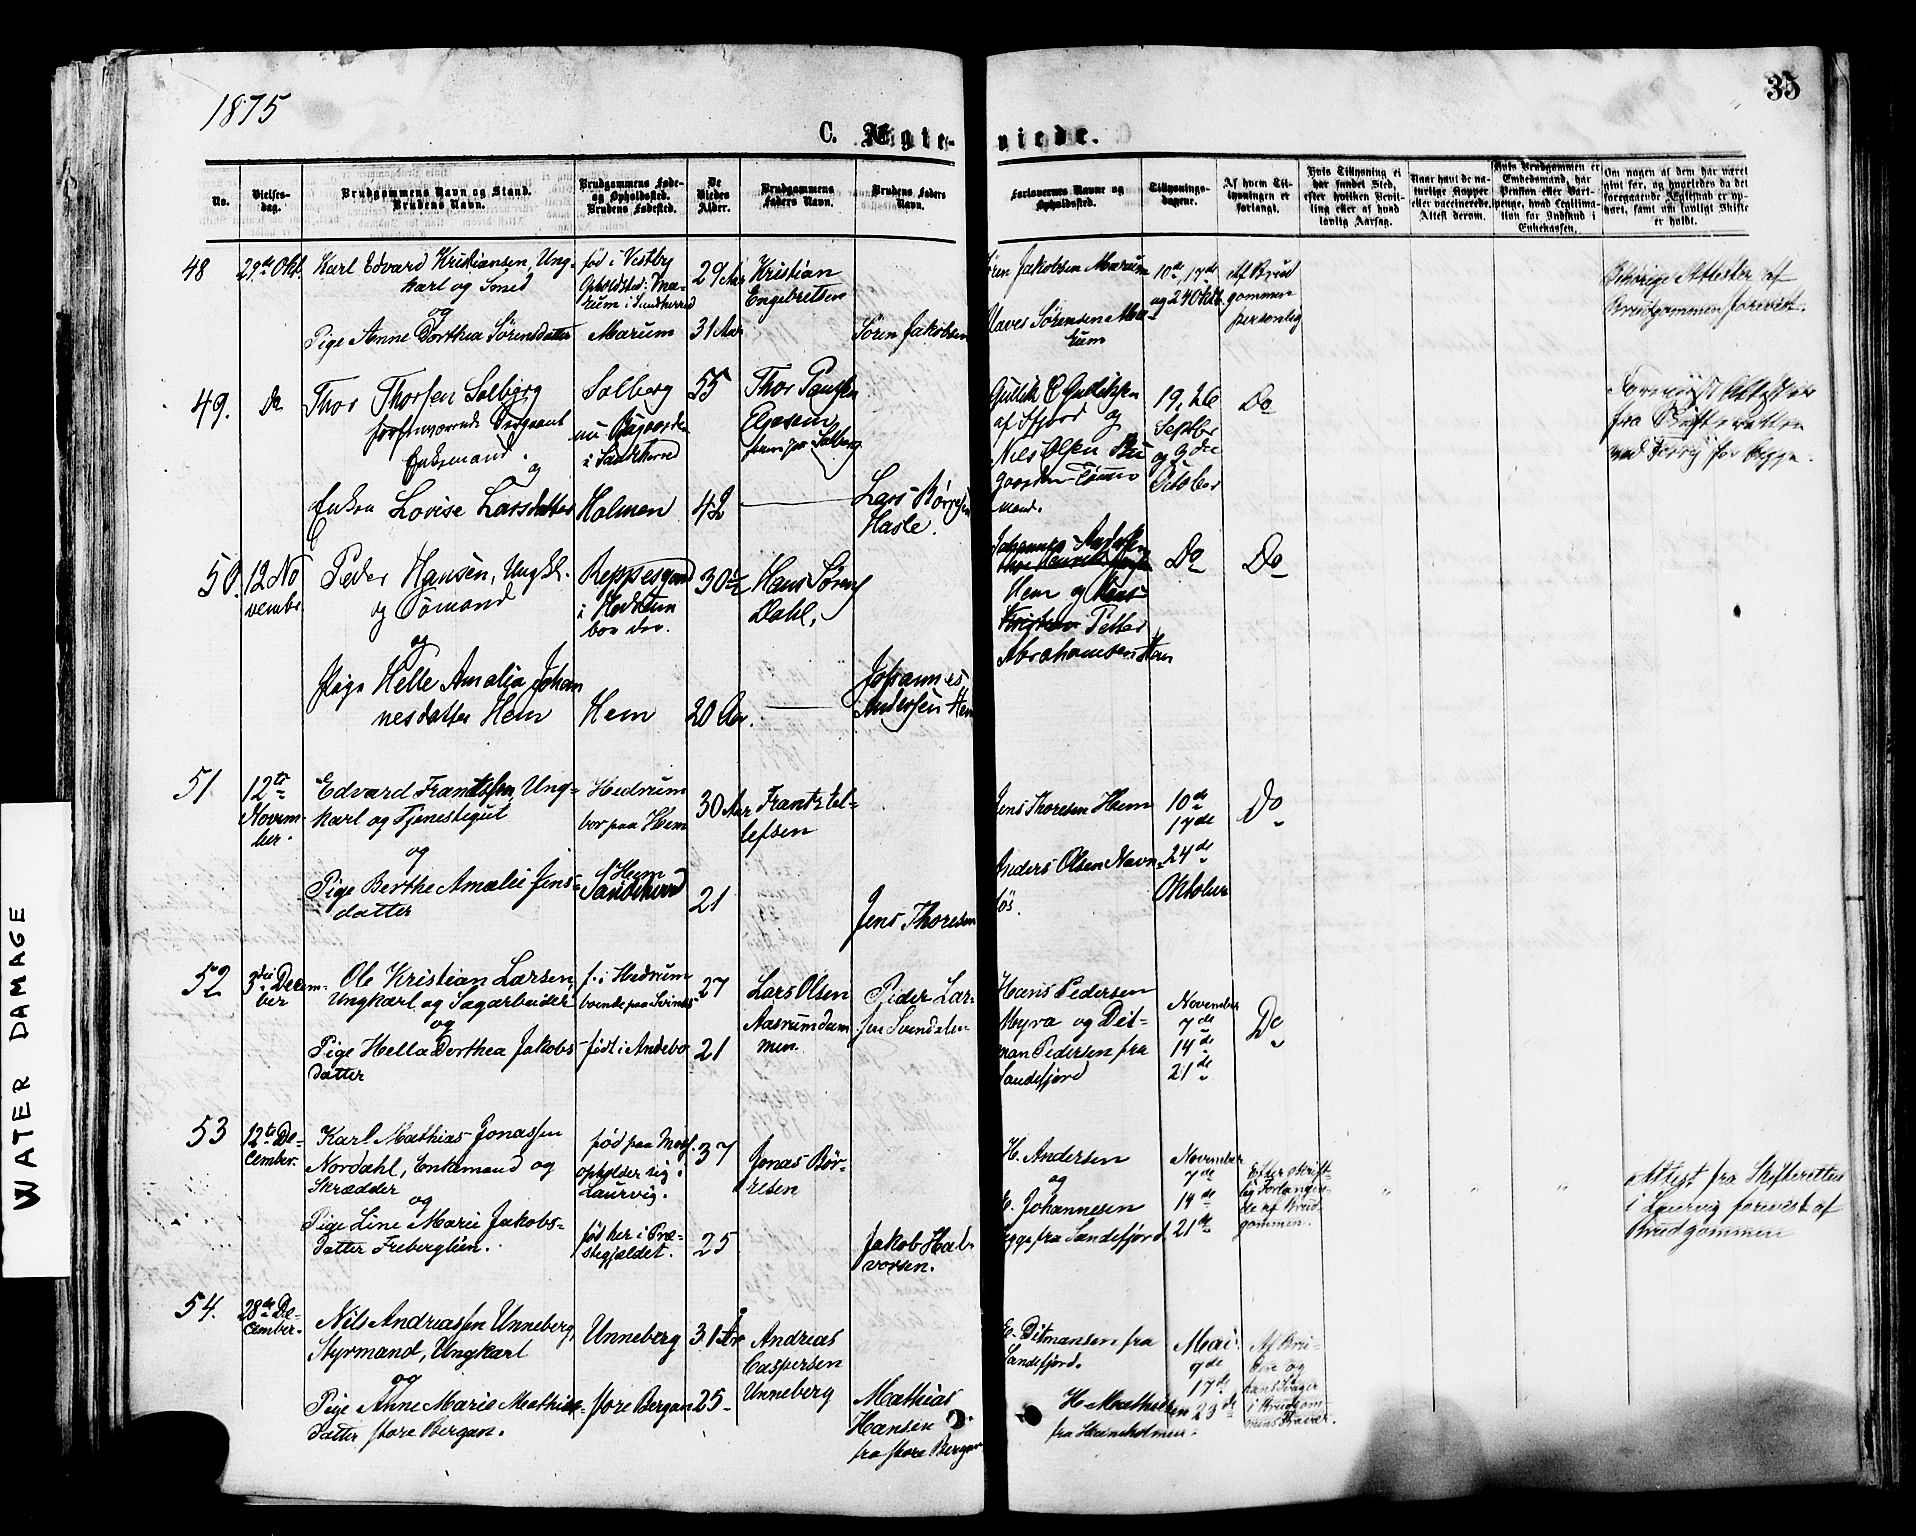 1875
35
C. Ægte-
viede.
No.
Vielses-
dag.
Brudgommens Navn og Stand.
Brudens Navn.
Brudgommens Føde-
og Opholdssted.
Brudens Fødested.
De
Viedes
Alder.
Brudgommens
Faders Navn.
Brudens Faders
Navn.
Forlovernes Navne og
Opholdssted.
Tillysnings-
dagene.
Af hvem Til-
lysningen er
forlangt.
Hvis Tillysning ei
har fundet Sted,
efter hvilken Bevil-
ling eller af hvad
lovlig Aarsag.
Naar havt de na-
turlige Kopper
eller vaccinerede.
Attest derom.
Hvis Brudgommen er
Embedsmand, har
Pension eller Vart-
penge, hvad Legitima-
tion for Indskud i
Enkekassen.
Om nogen af dem har været
givt før, og hvorledes da det
foregaaende Ægteskab er op-
hørt, samt om lovligt Skifte
er holdt.
48
29de Okt.
Karl Edvard Kristiansen, Ung-
karl og Smed
og
Pige Anne Dorthea Sørensdatter
fød i Vestby
Opholdsted: Ma-
rum i Sandherred
Marum
29 Aar
31 Aar
Kristian
Engebretsen
Søren Jakobsen
Søren Jakobsen Marum
Sørensen Ma-
rum
10de, 17de
og 24 Okt.
Af Brud
gommen
personlig
Attester af
Brudgommen forevist.
49.
Do
Thor Thorsen Solberg
forhenværende Sergeant
Enkemand.
og
Enken Lovise Larsdatter
Solberg
nu
i Sandherred
Holmen
55
42
Thor
Lars Børresen
Hasle.
Gullik
og
Nils Olsen
mand.
19, 26
Septber
og 9de
October
Do
fra Skifteretten
for begge.
50.
12 No
vembr.
Peder Hansen, Ungkl.
og Sømand
og
Pige Helle Amalia Johan
nesdatter Hem
i Hedrum
Hem
30½
20 Aar.
Hans Sørens
Dahl,
Johannes
Andersen Hem
Johannes Andersen
Hem og
Petter
Abrahamsen Hem
Do
Do
51
12te
Novem-
ber.
Edvard Frantssen Ung-
karl og Tjenestegut
og
Pige Berthe Amalie Jens-
datter
Hedrum
bor paa Hem
Hem
Sandeherred
30 Aar
21
Frantz El-
lefsen
Jens Thoresen
Jens Thoresen Hem
Anders Olsen Navn-
10de
17de
24de
Oktober
Do
52
3die Decem-
ber
Ole Kristian Larsen,
Ungkarl og Sagarbeider
og
Pige Hella Dorthea Jakobs-
datter
f. i Hedrum
boende paa
født i Andebo
27
21
Lars Olsen
Aasrumdam
men.
Peder Lar-
sen
Hans Pedersen
Myra og Dit-
man Pedersen fra
Sandefjord
November
7de
14de
21de
Do
53
12te De-
cember.
Karl Mathias Jonassen
Nordahl, Enkemand og
Skrædder
og
Pige Line Marie Jakobs-
datter
fød paa
opholder sig i
Laurvig.
fød her i Præ-
stegjældet.
37
25
Jonas Bør-
resen
Jakob Hal-
vorsen.
H. Andersen
og
Johannesen
begge fra Sandefjord
November
7de
14de
21de
Efter skrift-
lig Forlangen-
de af Brud
gommen.
"
"
"
Attest fra Skifteretten
i Laurvig forevist af
Brudgommen
54.
28de De-
cember.
Nils Andreassen Unneberg,
Styrmand, Ungkarl
og
Pige Anne Marie Mathias-
datter store Bergan.
Unneberg
store Bergan
31 År
25
Andreas
Caspersen
Unneberg
Mathias
Hansen
fra store Bergan
Ditmansen fra
Sandefjord.
fra
Mai
9de
17de
23de
Af Bru-
den og
hans Svager
i Brudgom-
mens Fravær.
WATER DAMAGE